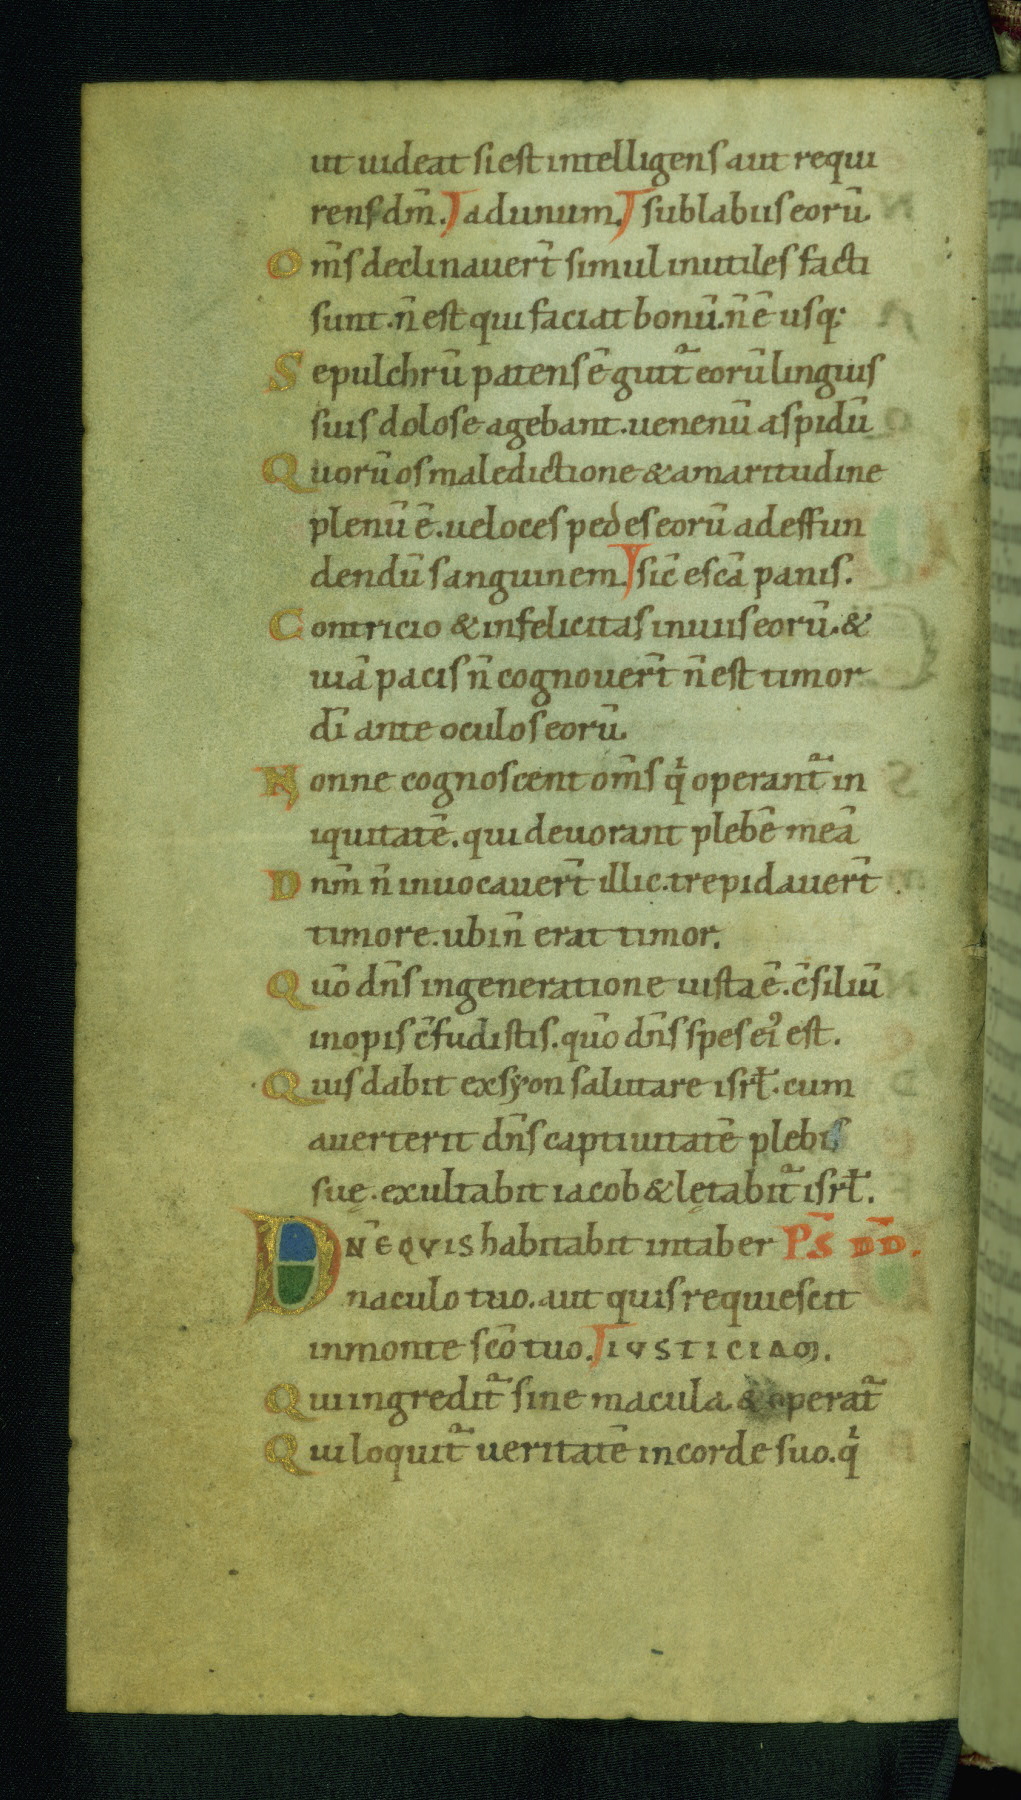 ut uideat si est intelligens aut requi
rens dm̄. ad unum. sub labiis eorū.
Om̄s declinauer̄t simul inutiles facti
sunt. n̄ est qui faciat bonū. n̄ ē usq;
Sepulchrū patens ē gutt᷑ eorū linguis
suis dolose agebant. uenenū aspidū
Quorū os maledictione & amaritudine
plenū ē. ueloces pedes eorū ad effun
dendū sanguinem sic̄ escā panis.
Contricio & infelicitas in uiis eorū. &
uiā pacis n̄ cognouer̄t n̄ est timor
dī ante oculos eorū.
Nonne cognoscent om̄s qͥ operant᷑ in
iquitatē. qui deuorant plebē meā
Dnm̄ n̄ inuocauer̄t illic. trepidauer̄t
timore. ubi n̄ erat timor.
Quō dn̄s in generatione iusta ē. c̄siliū
inopis c̄fudistis. quō dn̄s spes ei᾽ est.
Quis dabit ex syon salutare isrł. cum
auerterit dn̄s captiuitatē plebis
suę. exultabit iacob & lętabit᷑ isrł.
DN̄E QVIS habitabit in taber PS̄ DD̄.
naculo tuo. aut quis requiescit
in monte scō tuo. IVSTICIAM.
Qui ingredit᷑ sine macula & operat᷑
Qui loquit᷑ ueritatē in corde suo. qͥ